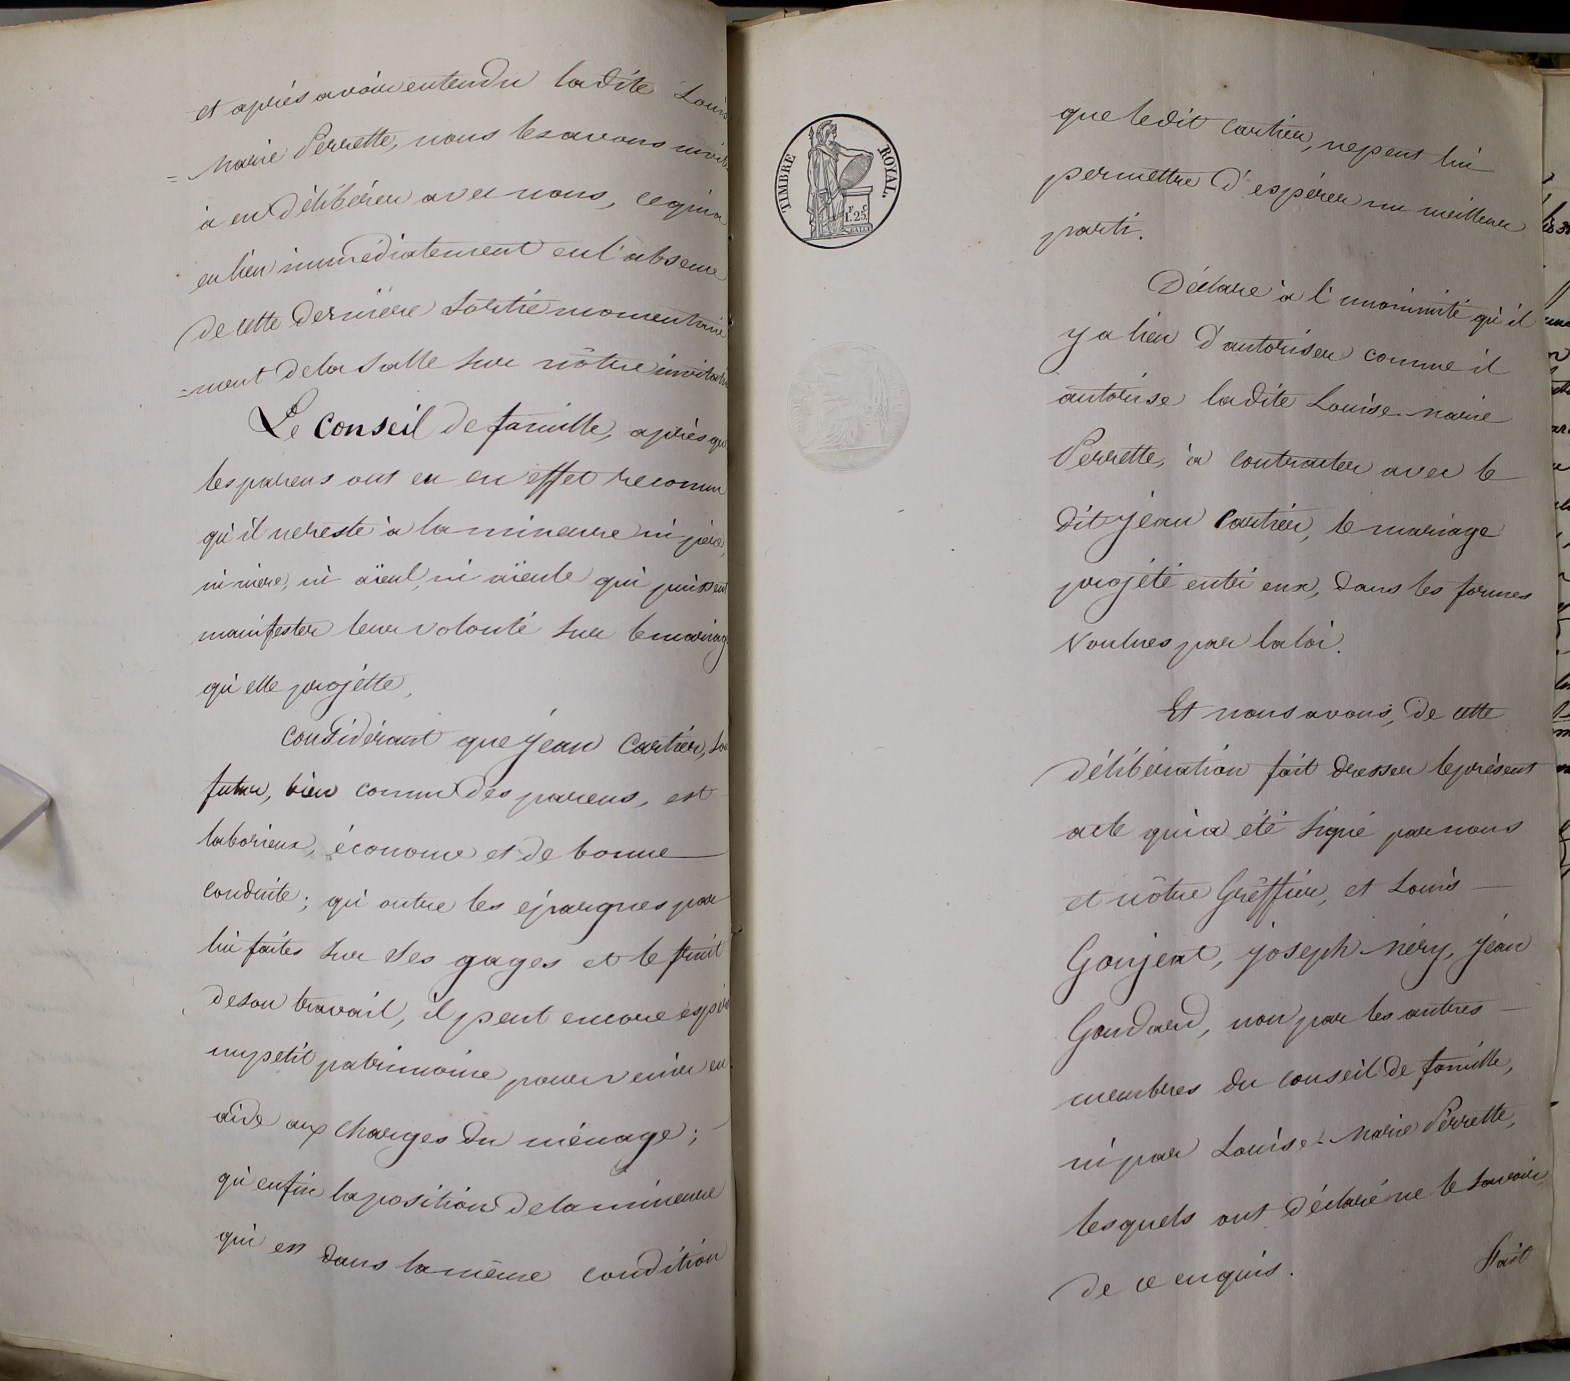 et après avoir entendu ladite Louis
= Marie Perrette, nous les avons invit
à en délibérer avec nous, ce qui a
eu lieu immédiatement en l'absence
de cette dernière sortie momentané
=ment de la salle sur nôtre invitati
Le Conseil de famille, après qu
les parens ont eu en effet reconnu
qu'il ne reste à la mineure ni père,
ni mère, ni aïeul, ni aïeule qui puissent
manifester leur volonté sur le mariag
qu'elle projette,
Considérant que jean Cartier, so
futur, bien connu des parens, est
laborieux, économe et de bonne
conduite ; qu'outre les épargnes par
lui faites sur ses gages et le fruit
de son travail, il peut encore espér
un petit patrimoine pour venir en
aide aux charges du ménage ;
qu'enfin la position de la mineure
qui est dans la même condition
TIMBRE ROYAL.
F. C
1. 25
que ledit Cartier, ne peut lui
permettre d'espérer un meilleur
parti.
Déclare à l'unanimité qu'il
y a lieu d'autoriser comme il
autorise ladite Louise-Marie
Perrette, à contracter avec le
dit jean Cartier, le mariage
projété entr'eux, dans les formes
voulues par la loi.
Et nous avons, de cette
délibération fait dresser le présent
acte qui a été signé par nous
et nôtre Greffier, et Louis
Goujeat, joseph Méry, jean
Goudard, non par les autres
membres du conseil de famille,
ni par Louise-Marie Perrette,
lesquels ont déclaré ne le savoir
de ce enquis.
Fait